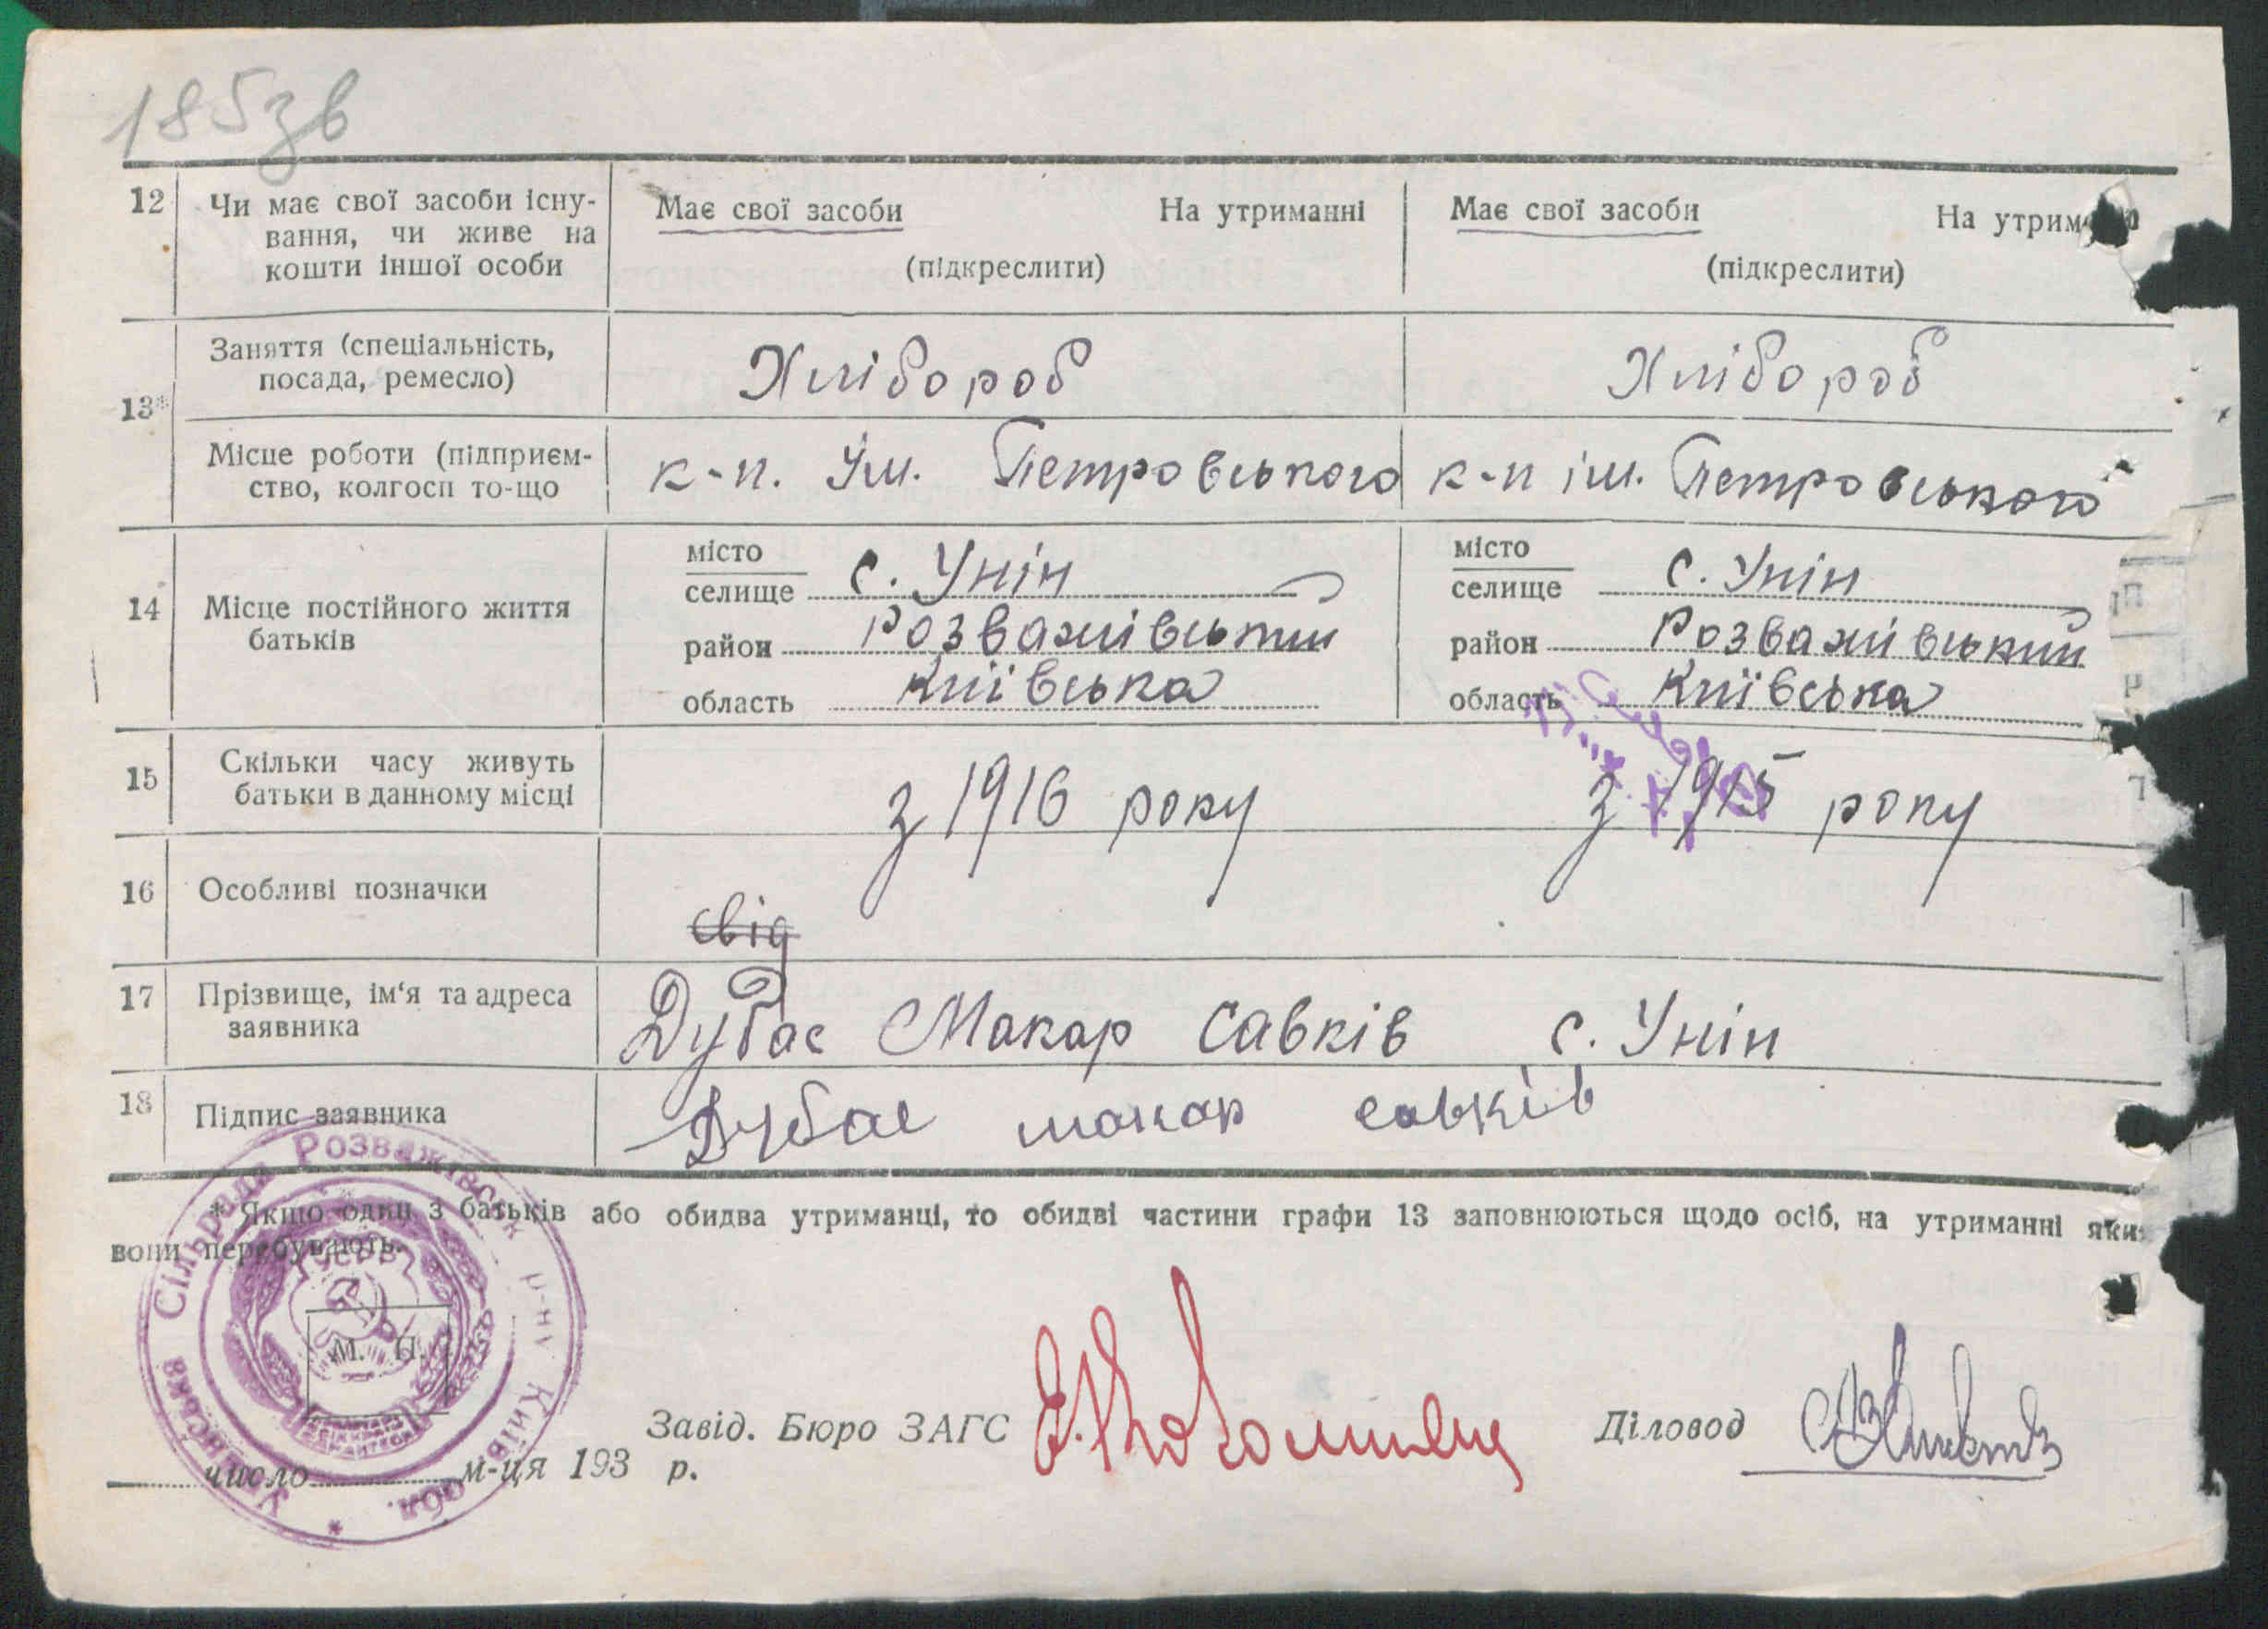 185зв
12 Чи має свої засоби існу- Має свої засоби На утриманні Має свої засоби На утрим
вання, чи живе на
кошти іншої особи (підкреслити) (підкреслити)
Заняття (спеціальність, Хлібороб Хлібороб
посада, ремесло)
13*
Місце роботи (підприєм- к-п. Ім. Петровського к-п ім. Петровського
ство, колгосп то-що
місто с. Унін місто с. Унін
селище селище
14 Місце постійного життя
батьків район Розважівський район Розважівський
область Київська область Київська
15 Скільки часу живуть з 1916 року з 1915 року
батьки в данному місці
16 Особливі позначки
свід
17 Прізвище, ім'я та адреса Дубас Макар Савків с. Унін
заявника
18 Підпис заявника Дубас макар савків
* Якщо один з батьків або обидва утриманці, то обидві частини графи 13 заповнюються щодо осіб, на утриманні яких
вони перебувають.
Унінська Сільрада Розважівськ р-ну Київ обл.
УСРР
М. П.
Завід. Бюро ЗАГС Діловод
число м-ця 193 р.